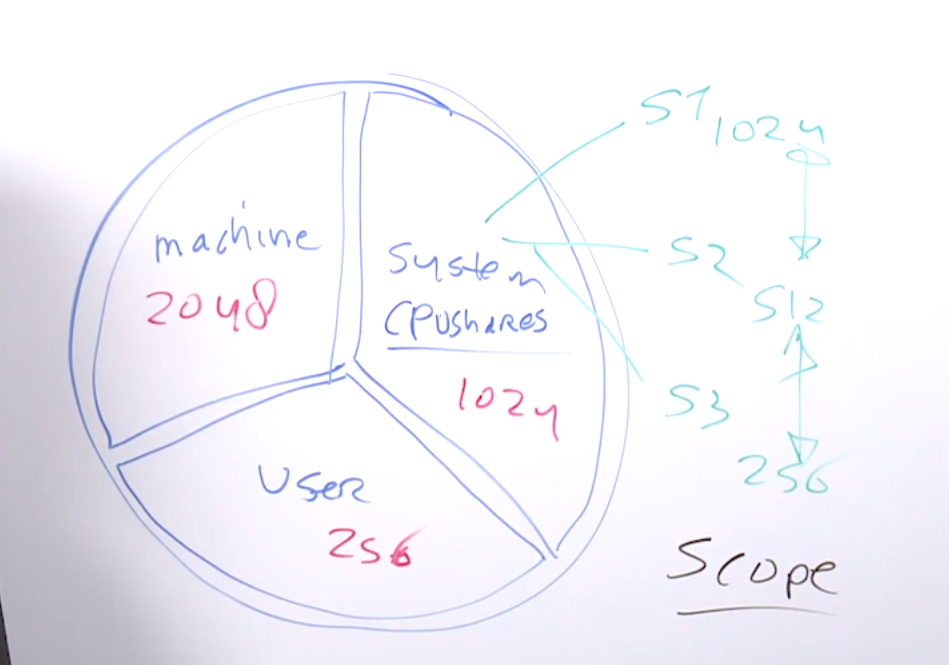 machine
2048
System
CPUSHARES
1024
User
256
S1 1024
S2
512
S3
256
Scope